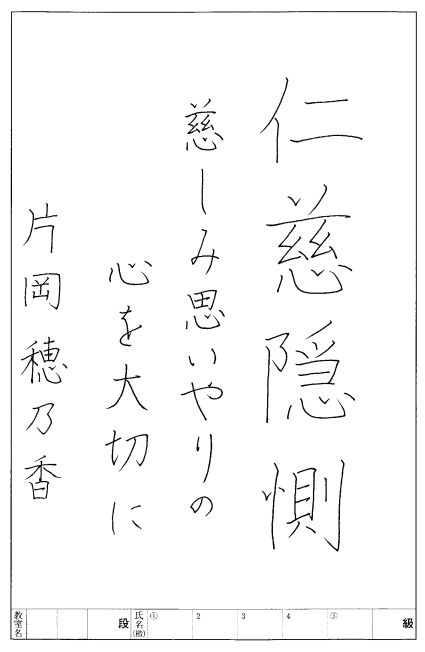 仁慈隠惻
慈しみ思いやりの
心を大切に
片岡穂乃香
級 ⑤ 4 3 2 ① 氏名(楷) 段 教室名